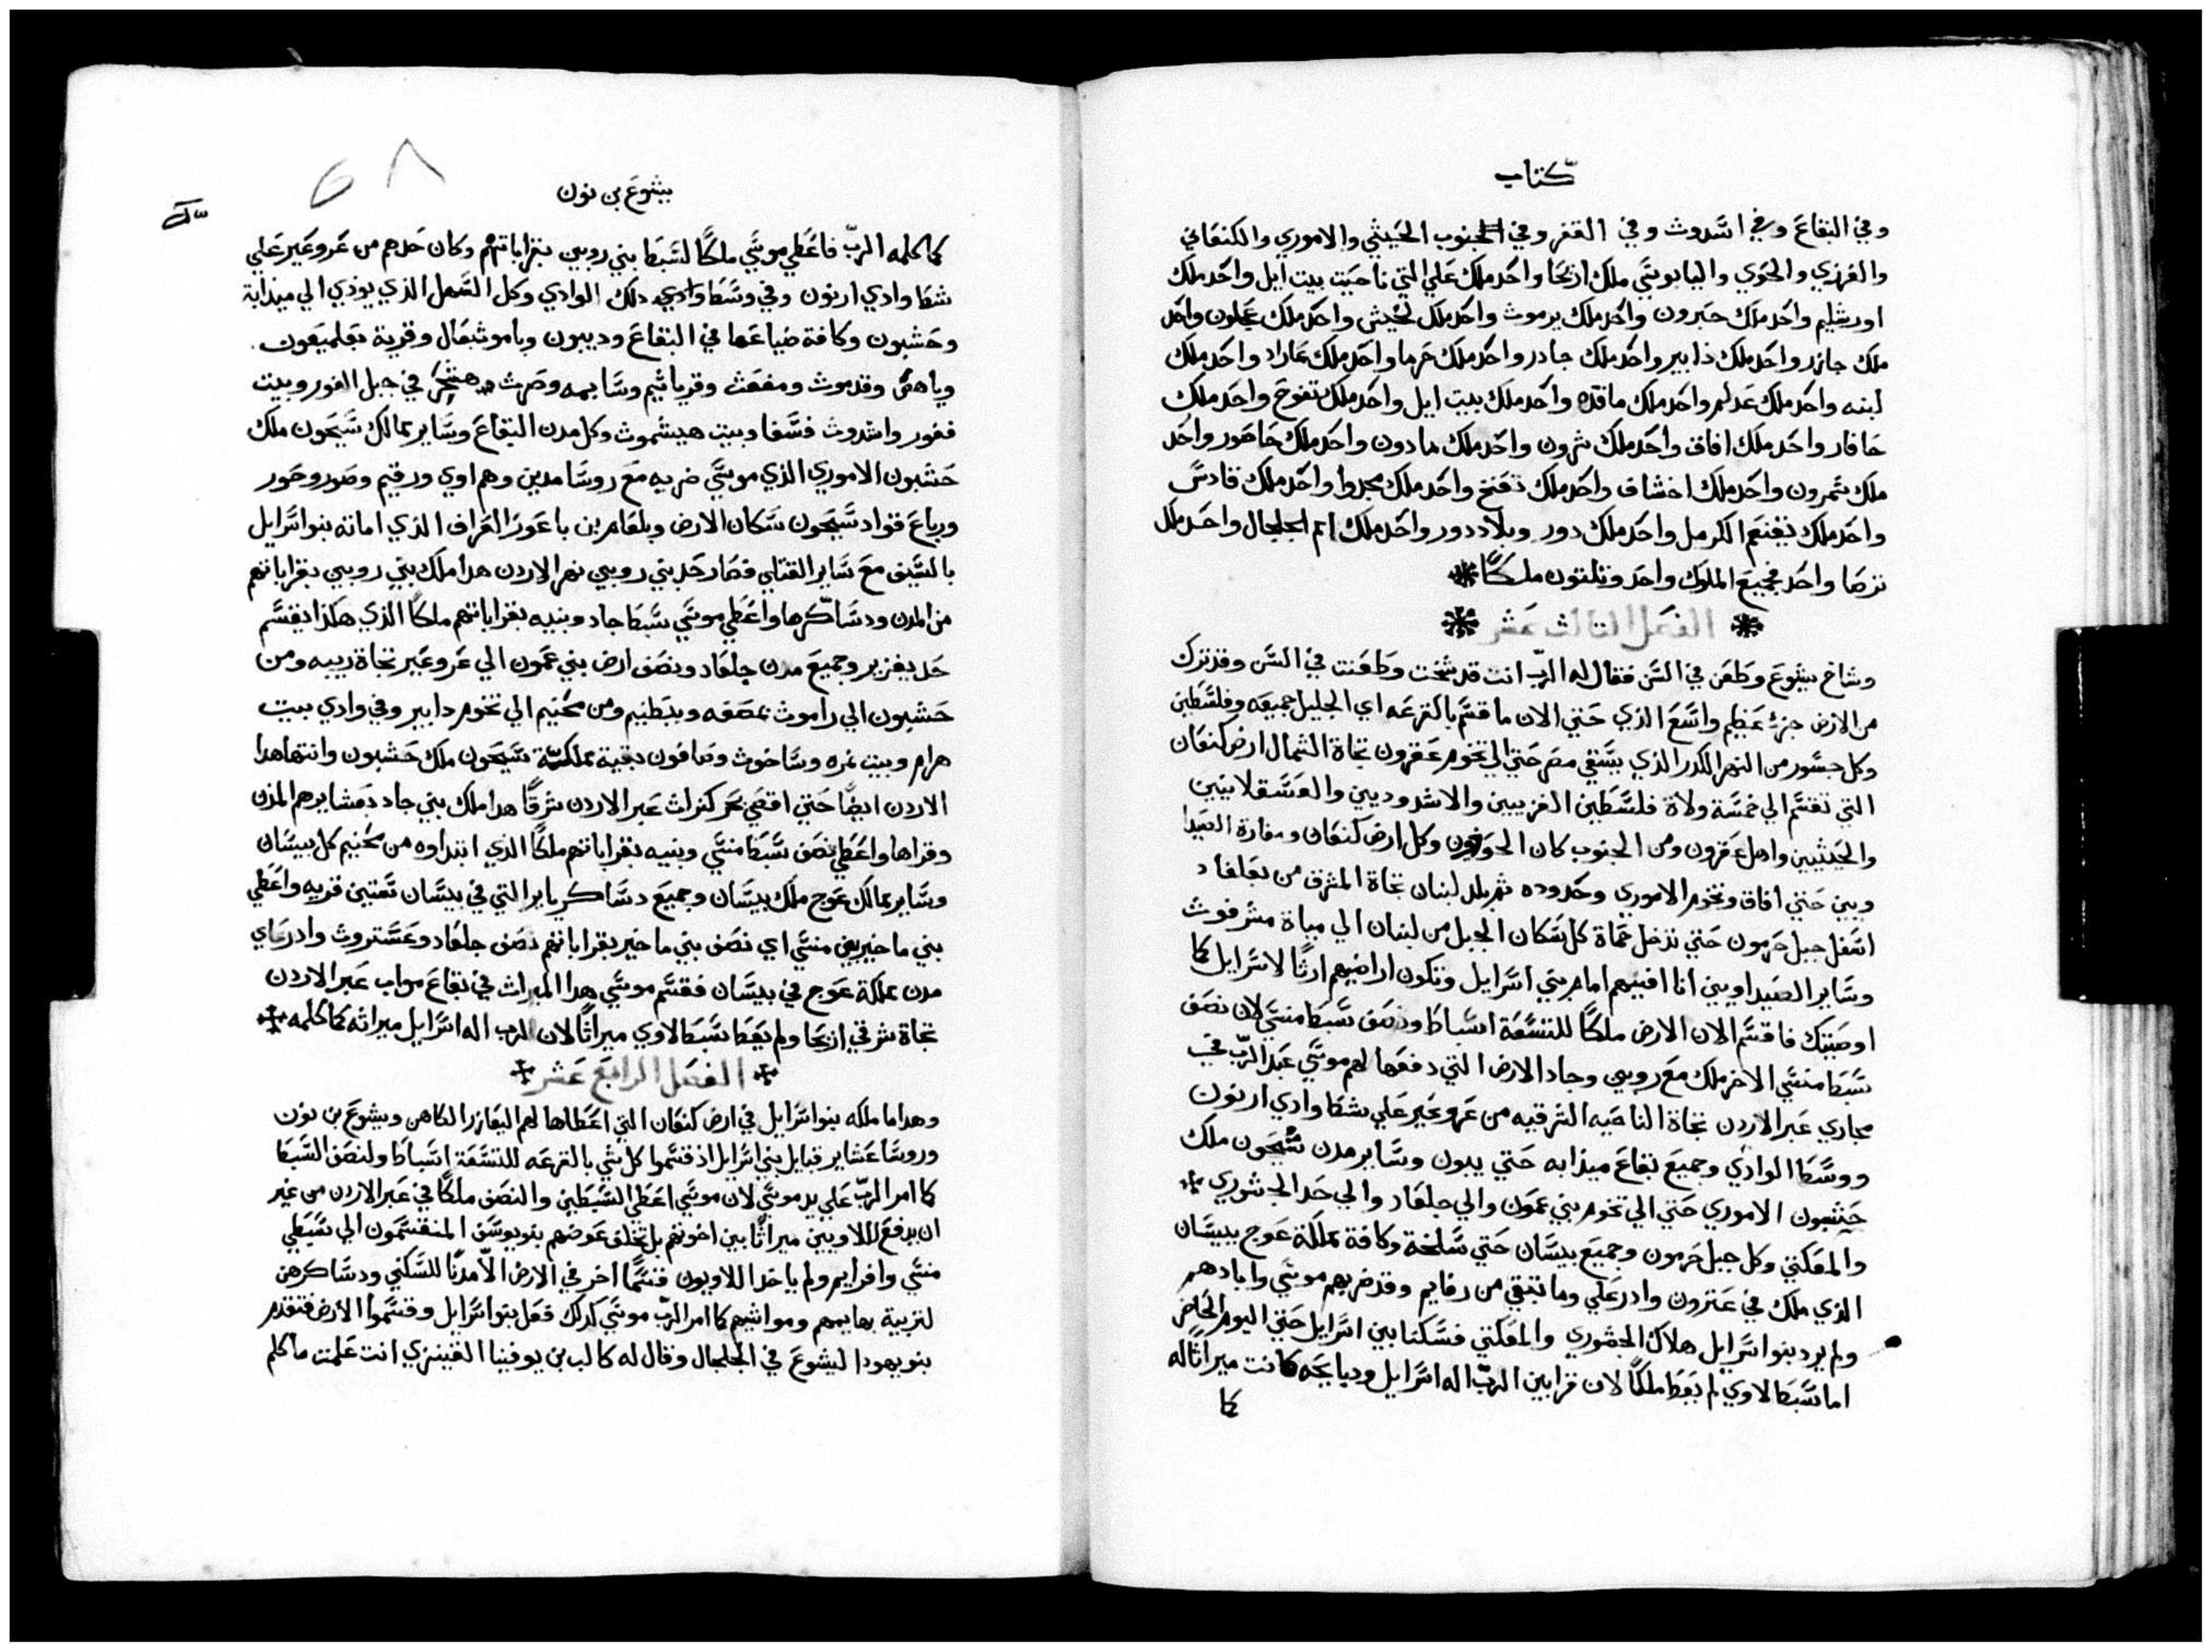 كتاب
وفي البقاع وفي اشدوث وفي القفر وفي الجنوب الحيثي والاموري والكنعاني
والفرزي والحوي واليابوسي ملك اريحا واحد ملك علي التي ناحيت بيت ايل واحد ملك
اورشليم واحد ملك حبرون واحد ملك يرموث واحد ملك لخيش واحد ملك عجلون واحد
ملك جازر واحد ملك دابير واحد ملك جادر واحد ملك حرما واحد ملك عاراد واحد ملك
لبنه واحد ملك عدلم واحد ملك ماقده واحد ملك بيت ايل واحد ملك تفوح واحد ملك
حافار واحد ملك افاق واحد ملك شرون واحد ملك مادون واحد ملك حاصور واحد
ملك شمرون واحد ملك اخشاف واحد ملك تعنخ واحد ملك مجدوا واحد ملك قادس
واحد ملك يقنعم الكرمل واحد ملك دور وبلاد دور واحد ملك امم الجلجال واحد ملك
ترصا واحد فجميع الملوك واحد وثلثون ملكًا
الفصل الثالث عشر
وشاخ يشوع وطعن في السن فقال له الرب انت قد شخت وطعنت في السن وقد ترك
من الارض جزء عظيم واسع الذي حتي الان ما قسم بالقرعه اي الجليل جميعه وفلسطين
وكل جسور من النهر الكدر الذي يسقي مصر حتي الي تخوم عقرون تجاة الشمال ارض كنعان
التي تقسم الي خمسة ولاة فلسطين الغزيين والاشدوديين والعسقلانيين
والجيثيين واهل عقرون ومن الجنوب كان الحوفيون وكل ارض كنعان ومغارة الصيدا
ويين حتي افاق وتخوم الاموري وحدوده ثم بلد لبنان تجاة المشرق من بعلغاد
اسفل جبل حرمون حتي تدخل حماة كل سكان الجبل من لبنان الي مياة مشرفوث
وساير الصيداويين انا افنيهم امام بني اسرايل وتكون اراضيهم ارثًا لاسرايل كما
اوصيتك فاقسم الان الارض ملكًا للتسعة اسباط ونصف سبط منسي لان نصف
سبط منسي الاخر ملك مع روبين وجاد الارض التي دفعها لهم موسي عبد الرب في
مجاري عبر الاردن تجاة الناحيه الشرقيه من عروعير علي شط وادي ارنون
ووسط الوادي وجميع بقاع ميذابه حتي يبون وساير مدن سيحون ملك
حشبون الاموري حتي الي تخوم بني عمون والي جلعاد والي حد الجشوري
والمعكتي وكل جبل حرمون وجميع بيسان حتي سلخة وكافة مملكة عوج ببيسان
الذي ملك في عترون وادرعلي وما تبقي من رفايم وقد ضربهم موسي وابادهم
ولم يرد بنو اسرايل هلاك الجشوري والمعكتي فسكنا بين اسرايل حتي اليوم الحاضر
اما سبط لاوي لم يعط ملكًا لان قرابين الرب اله اسرايل ودبايحه كانت ميراثًا له
كما
يشوع بن نون
٦٨
كما كلمه الرب فاعطي موسي ملكًا لسبط بني روبين بقراباتهم وكان حدهم من عروعير علي
شط وادي ارنون وفي وسط وادي دلك الوادي وكل السهل الذي يودي الي ميذابة
وحشبون وكافة ضياعها في البقاع وديبون وباموث بعال وقرية بعلميعون
وياهص وقدموث ومفعث وقرياثيم وسابمه وصرث هشحر في جبل الغور وبيت
فغور واشدوث فسغا وبيت هيشموث وكل مدن البقاع وساير ممالك سيحون ملك
حشبون الاموري الذي موسي ضربه مع روسا مدين وهم اوي ورقيم وصور وحور
ورباع قواد سيحون سكان الارض وبلعام بن باعور العراف الذي اماته بنو اسرايل
بالسيف مع ساير القتلي فصار حد بني روبين نهر الاردن هدا ملك بني روبين بقراباتهم
من المدن ودساكرها واعطي موسي سبط جاد وبنيه بقراباتهم ملكًا الذي هكذا يقسم
حد يعزير وجميع مدن جلعاد ونصف ارض بني عمون الي عروعير تجاة ربيه ومن
حشبون الي راموث مصفه وبطنيم ومن محنيم الي تخوم دابير وفي وادي بيت
هرام وبيت نمره وساخوث وصافون بقية مملكة سيحون ملك حشبون وانتها هدا
الاردن ايضًا حتي اقصي بحر كنراث عبر الاردن شرقًا هدا ملك بني جاد بعشايرهم المدن
وقراها واعطي نصف سبط منسي وبنيه بقراباتهم ملكًا الذي ابتداوه من محنيم كل بيسان
وساير ممالك عوج ملك بيسان وجميع دساكر يابر التي في بيسان ستين قريه واعطي
بني ماخير بن منسي اي نصف بني ماخير بقراباتهم نصف جلعاد وعستروث وادرعاي
مدن مملكة عوج في بيسان فقسم موسي هدا الميراث في بقاع مواب عبر الاردن
تجاة شرقي اريحا ولم يعط سبط لاوي ميراثًا لان الرب اله اسرايل ميراثه كما كلمه
الفصل الرابع عشر
وهدا ما ملكه بنو اسرايل في ارض كنعان التي اعطاها لهم اليعازر الكاهن ويشوع بن نون
وروسا عشاير قبايل بني اسرايل اذ قسموا كل شي بالقرعه للتسعة اسباط ولنصف السبط
كما امر الرب علي يد موسي لان موسي اعطي السبطين والنصف ملكًا في عبر الاردن من غير
ان يدفع للاويين ميراثًا بين اخوتهم بل تخلف عوضهم بنو يوسف المنقسمون الي سبطي
منسي وافرايم ولم ياخد اللاويون قسمًا اخر في الارض الا مدنًا للسكني ودساكرهن
لتربية بهايمهم ومواشيهم كما امر الرب موسي كدلك فعل بنو اسرايل وقسموا الارض فتقدم
بنو يهودا ليشوع في الجلجال وقال له كالب بن يوفنيا القينزي انت علمت ما كلم